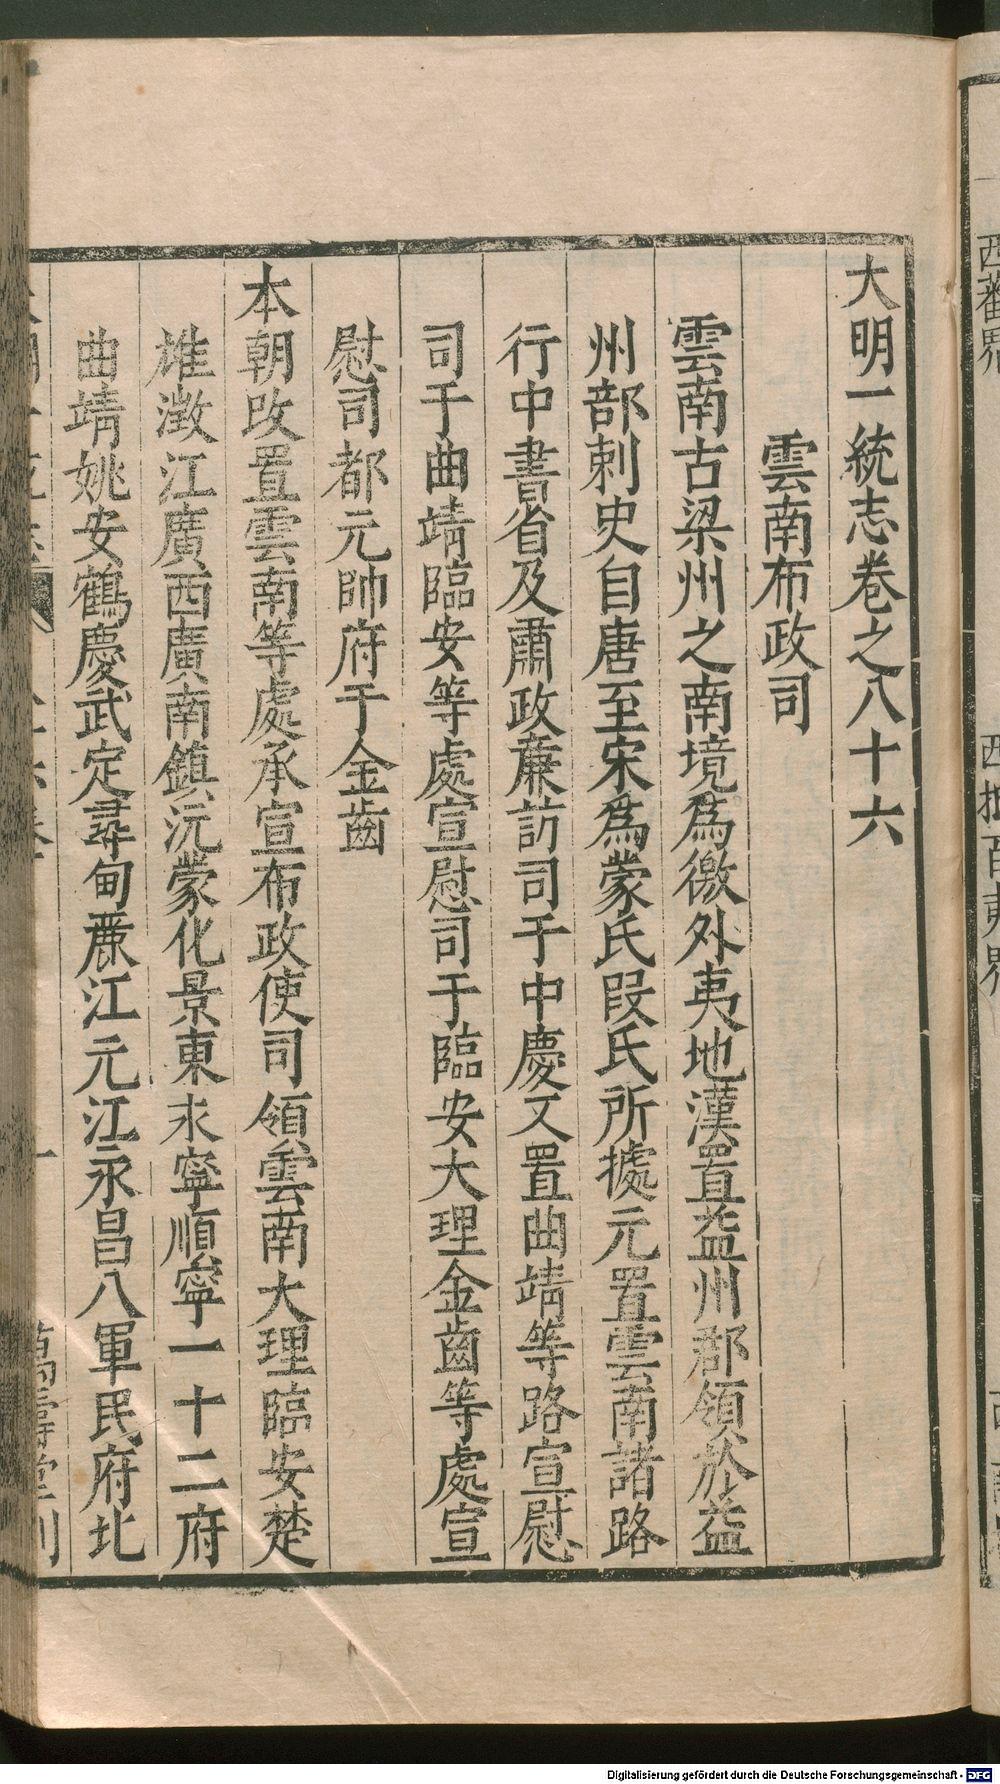 大明一統志卷之八十六
雲南布政司
雲南古梁州之南境爲徼外夷地漢置益州郡領於益
州部刺史自唐至宋爲蒙氏段氏所據元置雲南諸路
行中書省及肅政廉訪司于中慶又置曲靖等路宣慰
司于曲靖臨安等處宣慰司于臨安大理金齒等處宣
慰司都元帥府于金齒
本朝改置雲南等處承宣布政使司領雲南大理臨安楚
雄澂江廣西廣南鎮沅蒙化景東永寧順寧一十二府
曲靖姚安鶴慶武定尋甸麗江元江永昌八軍民府北
萬壽堂刊
西番界
Digitalisierung gefördert durch die Deutsche Forschungsgemeinschaft - DFG